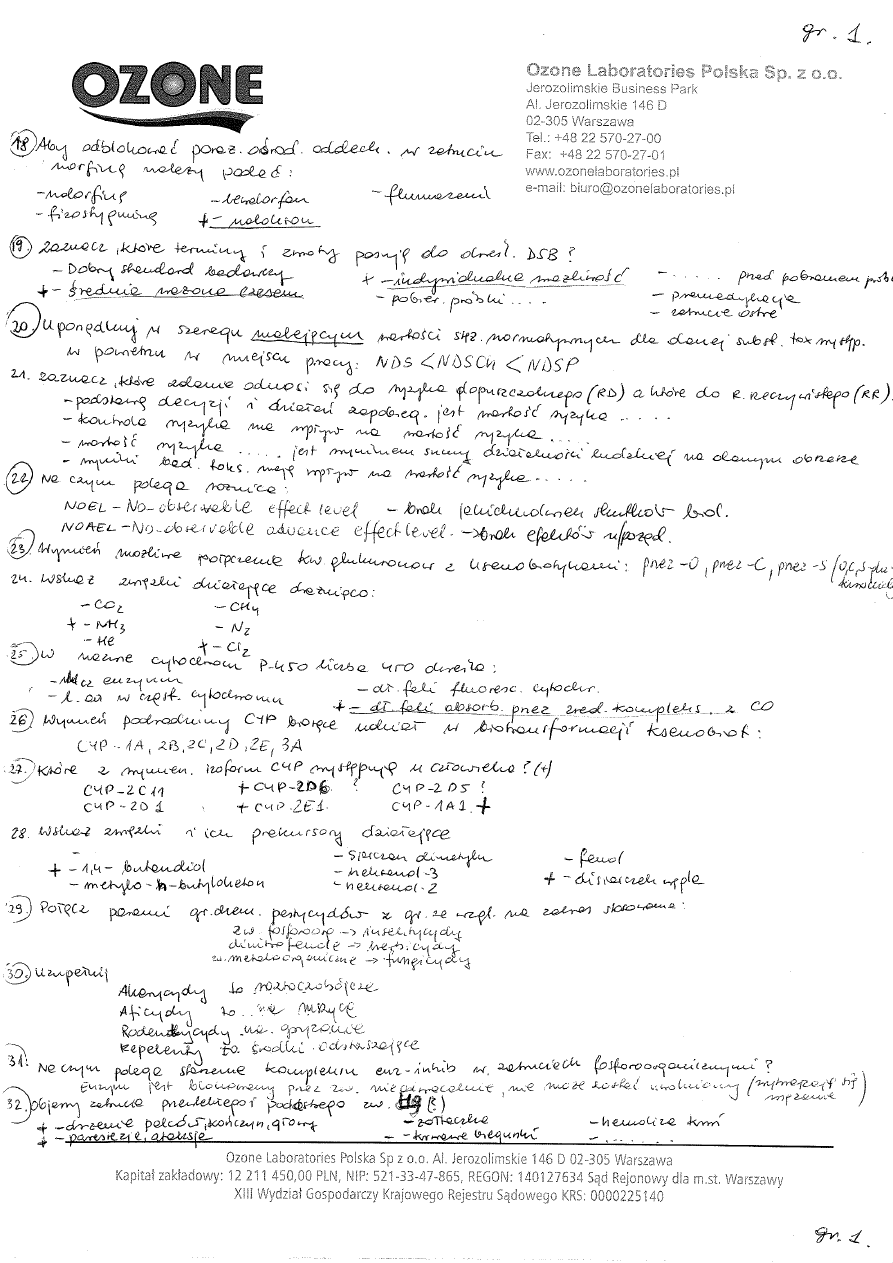 gr. 1.
OZONE
Ozone Laboratories Polska Sp. z o.o.
Jerozolimskie Business Park
Al. Jerozolimskie 146 D
02-305 Warszawa
Tel.: +48 22 570-27-00
Fax: +48 22 570-27-01
www.ozonelaboratories.pl
e-mail: biuro@ozonelaboratories.pl
18) Aby odblokować poraż. ośrod. oddech. w zatruciu
morfiną należy podać:
- nalorfinę - lewalorfan - flumazenil
- fizostygminę + - nalokson
19) Zaznacz, które terminy i zwroty pasują do określ. DSB?
- Dobry standard badawczy + - indywidualna możliwość - ..... przed pobraniem prób
+ - średnia ważona czasem - pobier. próbki .... - premedykacja
- zatrucie ostre
20) Uporządkuj w szeregu malejącym wartości stęż. normatywnych dla danej subst. tox występ.
w powietrzu w miejscu pracy: NDS < NDSCh < NDSP
21. Zaznacz, które zdanie odnosi się do ryzyka dopuszczalnego (RD) a które do R. rzeczywistego (RR).
- podstawą decyzji i działań zapobieg. jest wartość ryzyka .....
- kontrola ryzyka nie wpływ na wartość ryzyka .....
- wartość ryzyka ..... jest wynikiem sumy działalności ludzkiej na danym obszarze
- wyniki bad. toks. mają wpływ na wartość ryzyka .....
22) Na czym polega różnica:
NOEL - No-observable effect level - brak jakichkolwiek skutków biol.
NOAEL - No-observable advance effect level -> brak efektów uposzed.
23) Wymień możliwe połączenie kw glukuronow z ksenobiotykami: przez -O, przez -C, przez -S
24. Wskaż związki działające drażniąco:
- CO2 - CH4
+ - NH3 - N2
- He + - Cl2
25) W nazwie cytochrom P-450 liczba 450 określa:
- cz enzymu - dł. fali fluoresc. cytochr.
- l. aa w cząst. cytochromu + - dł. fali absorb. przez zred. kompleks z CO
26) Wymień podrodziny CYP biorące udział w biotransformacji ksenobiot:
CYP - 1A, 2B, 2C, 2D, 2E, 3A
27) Które z wymien. izoform CYP występuje u człowieka? (+)
CYP-2C11 + CYP-2D6 ? CYP-2D5 ?
CYP-2D1 + CYP. 2E1. CYP-1A1. +
28. Wskaż związki i ich prekursory działające
- - Siarczan dimetylu - fenol
+ - 1,4- butandiol - heksanol-3 + - disiarczek węgla
- metylo-n-butyloketon - heksanol-2
29.) Połącz parami gr. chem. pestycydów z gr. ze wzgl. na zakres stosowania:
zw. fosforoorg -> insektycydy
dinitrofenole -> herbicydy
zw. metaloorganiczne -> fungicydy
30.) Uzupełnij
Akarycydy to roztoczobójcze
Aficydy to .. na mszyce
Rodentycydy .na. gryzonie
Repelenty to środki odstraszające
31. Na czym polega starzenie kompleksu enz-inhib w. zatruciach fosforoorganicznymi?
Enzym jest blokowany przez zw. nieodwracalnie, nie może zostać uwolniony
32.) Objawy zatrucia przewlekłego i podostrego zw. Hg (?)
+ - drżenie palców, kończyn, głowy - żółtaczka - hemoliza krwi
+ - parestezje, ataksje - - krwawe biegunki - ......
Ozone Laboratories Polska Sp z o.o. Al. Jerozolimskie 146 D 02-305 Warszawa
Kapitał zakładowy: 12 211 450,00 PLN, NIP: 521-33-47-865, REGON: 140127634 Sąd Rejonowy dla m.st. Warszawy
XIII Wydział Gospodarczy Krajowego Rejestru Sądowego KRS: 0000225140
gr. 1.